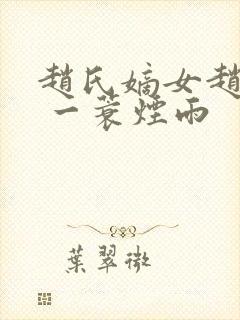 趙氏嫡女趙
一蓑煙雨
葉翠微